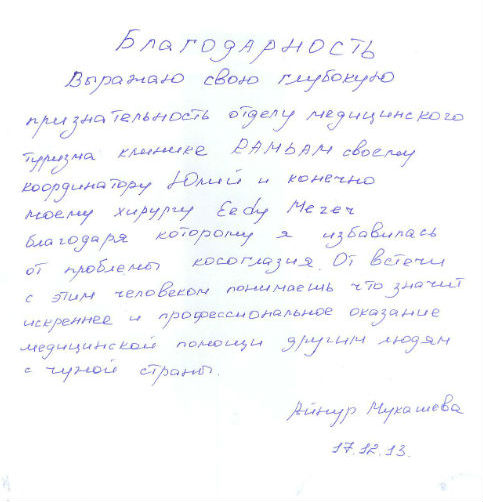 Благодарность
Выражаю свою глубокую
признательность отделу медицинского
туризма клинике РАМБАМ своему
координатору Юлий и конечно
моему хирургу Ееду Мегеч
благодаря которому я избавилась
от проблемы косоглазия. От встечи
с этим человеком понимаешь что значит
искреннее и профессиональное оказание
медицинской помощи другим людям
с чужой страны.
Айнур Мукашева
17.12.13.